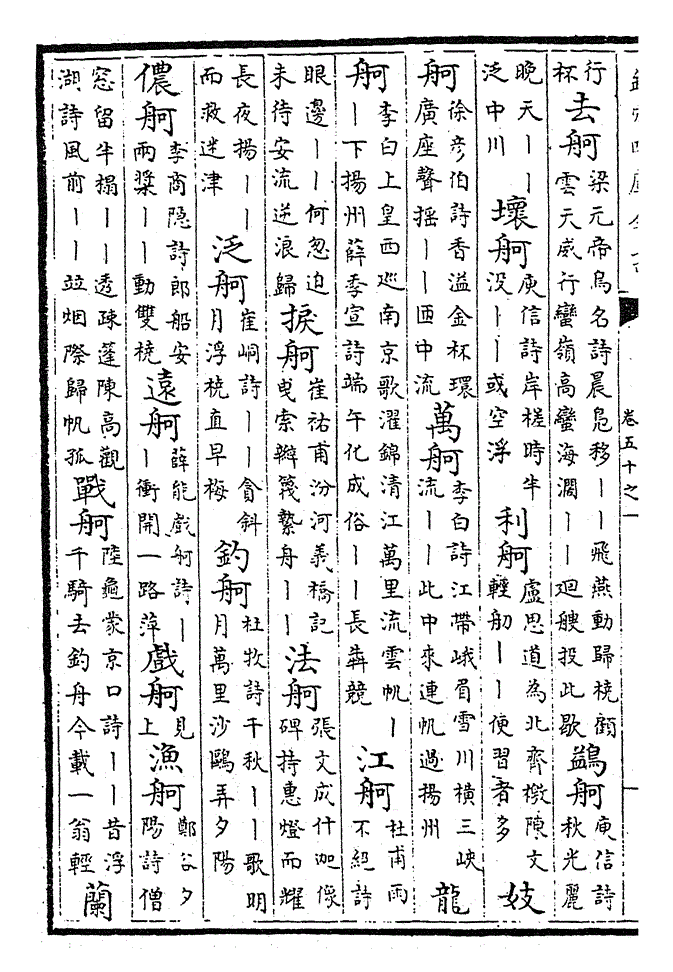 欽定四庫全書
卷五十之一
行杯 去舸 梁元帝鳥名詩晨鳧移一一飛燕動歸橈顧雲天威行蠻嶺高蠻海濶一一廻艘投此歇 鷁舸 庾信詩秋光麗
晚天一一泛中川 壞舸 庾信詩岸槎時半没一一或空浮 利舸 盧思道為北齊檄陳文輕舠一一便習者多 妓
舸 徐彦伯詩香溢金杯環廣座聲摇一一匝中流 萬舸 李白詩江帶峨眉雪川橫三峽流一一此中來連帆過揚州 龍
舸 李白上皇西巡南京歌濯錦清江萬里流雲帆一一下揚州薛季宣詩端午化成俗一一長犇競 江舸 杜甫雨不絕詩
眼邊一一何忽迫未待安流逆浪歸 捩舸 崔祐甫汾河義橋記曵索辮篾縶舟一一 法舸 張文成什迦像碑持惠燈而耀
長夜揚一一而救迷津 泛舸 崔峒詩一一貪斜月浮橈直早梅 釣舸 杜牧詩千秋一一歌明月萬里沙鷗弄夕陽
儂舸 李商隐詩郎船安兩槳一一動雙橈 遠舸 薛能戲舸詩一一衝開一路萍 戲舸 見上 漁舸 鄭谷夕陽詩僧
窓留半榻一一透疎篷陳高觀湖詩風前一一竝烟際歸帆孤 戰舸 陸龜蒙京口詩一一昔浮千騎去釣舟今載一翁輕 蘭